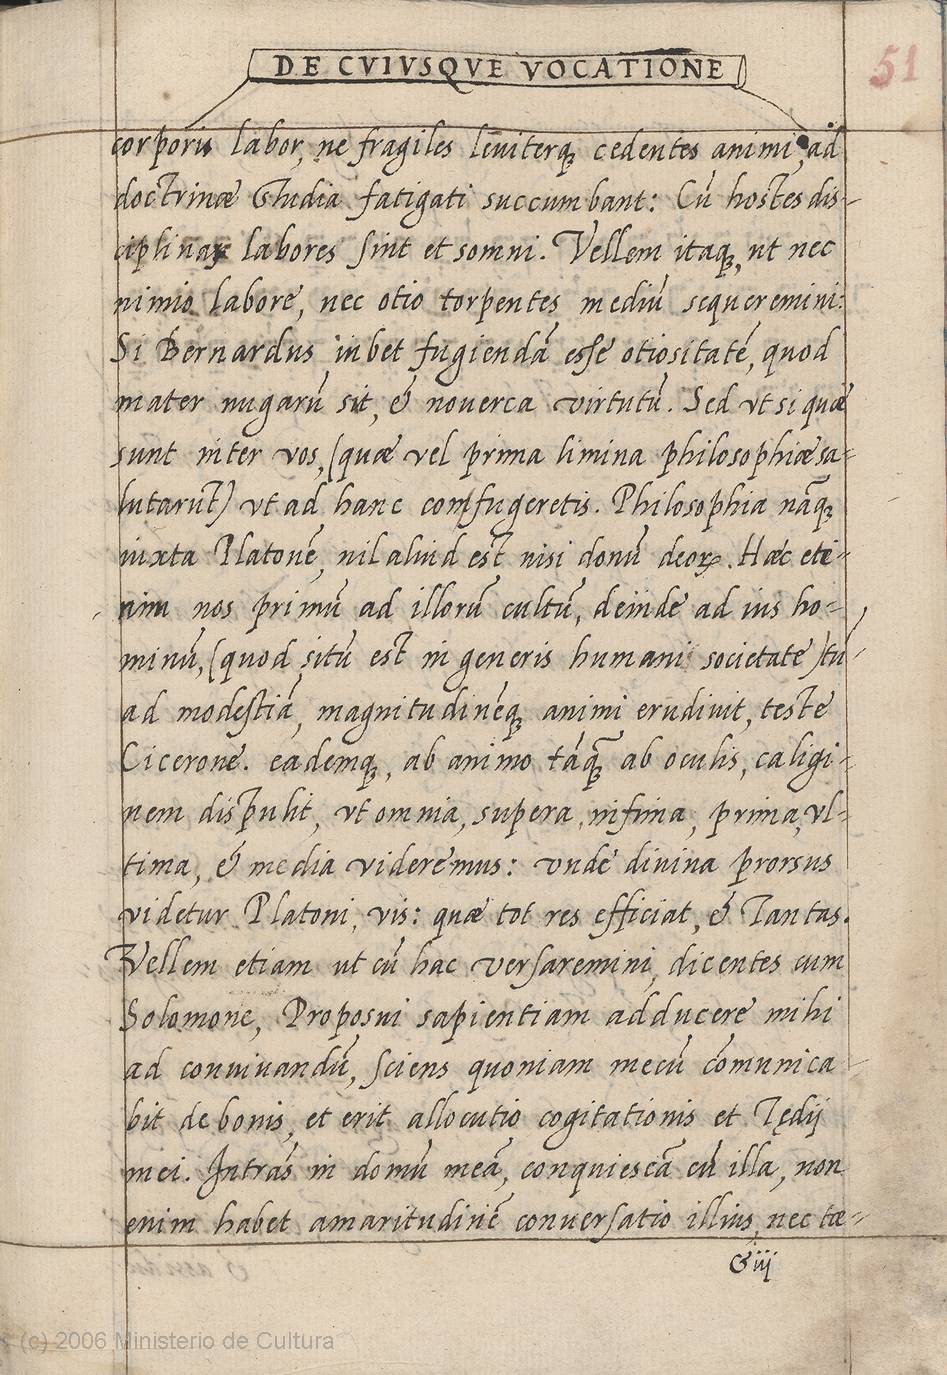 DE CVIVSQVE VOCATIONE
51
corporis labor, ne fragiles leuiterq; cedentes animi, ad
doctrinæ studia fatigati succumbant: Cū hostes dis-
ciplinæ labores sint et somni. Vellem itaq;, ut nec
nimio labore, nec otio torpentes mediū sequeremini:
Si Bernardus iubet fugiendā esse otiositatē, quod
mater nugarū sit, & nouerca virtutū. Sed vt si quæ
sunt inter vos, (quæ vel prima limina philosophiæ sa-
lutarūt) vt ad hanc confugeretis. Philosophia nāq;
iuxta Platonē, nil aliud est nisi donū deoꝝ. Hæc ete-
nim nos primū ad illorū cultū, deinde ad ius ho-
minū, (quod sitū est in generis humani societate) tū
ad modestiā, magnitudinēq; animi erudiuit, teste
Cicerone. eademq;, ab animo tāq̄ ab oculis, caligi-
nem dispulit, vt omnia, supera, infima, prima, vl-
tima, & media videremus: vnde diuina prorsus
videtur Platoni, vis: quæ tot res efficiat, & Tantas.
Vellem etiam ut cū hac versaremini, dicentes cum
Solomone, Proposui sapientiam adducere mihi
ad conuiuandū, sciens quoniam mecū cōmunica
bit de bonis, et erit allocutio cogitationis et Tędij
mei. Intrās in domū meā, conquiescā cū illa, non
enim habet amaritudinē conuersatio illius, nec tæ-
G iij
(c) 2006 Ministerio de Cultura